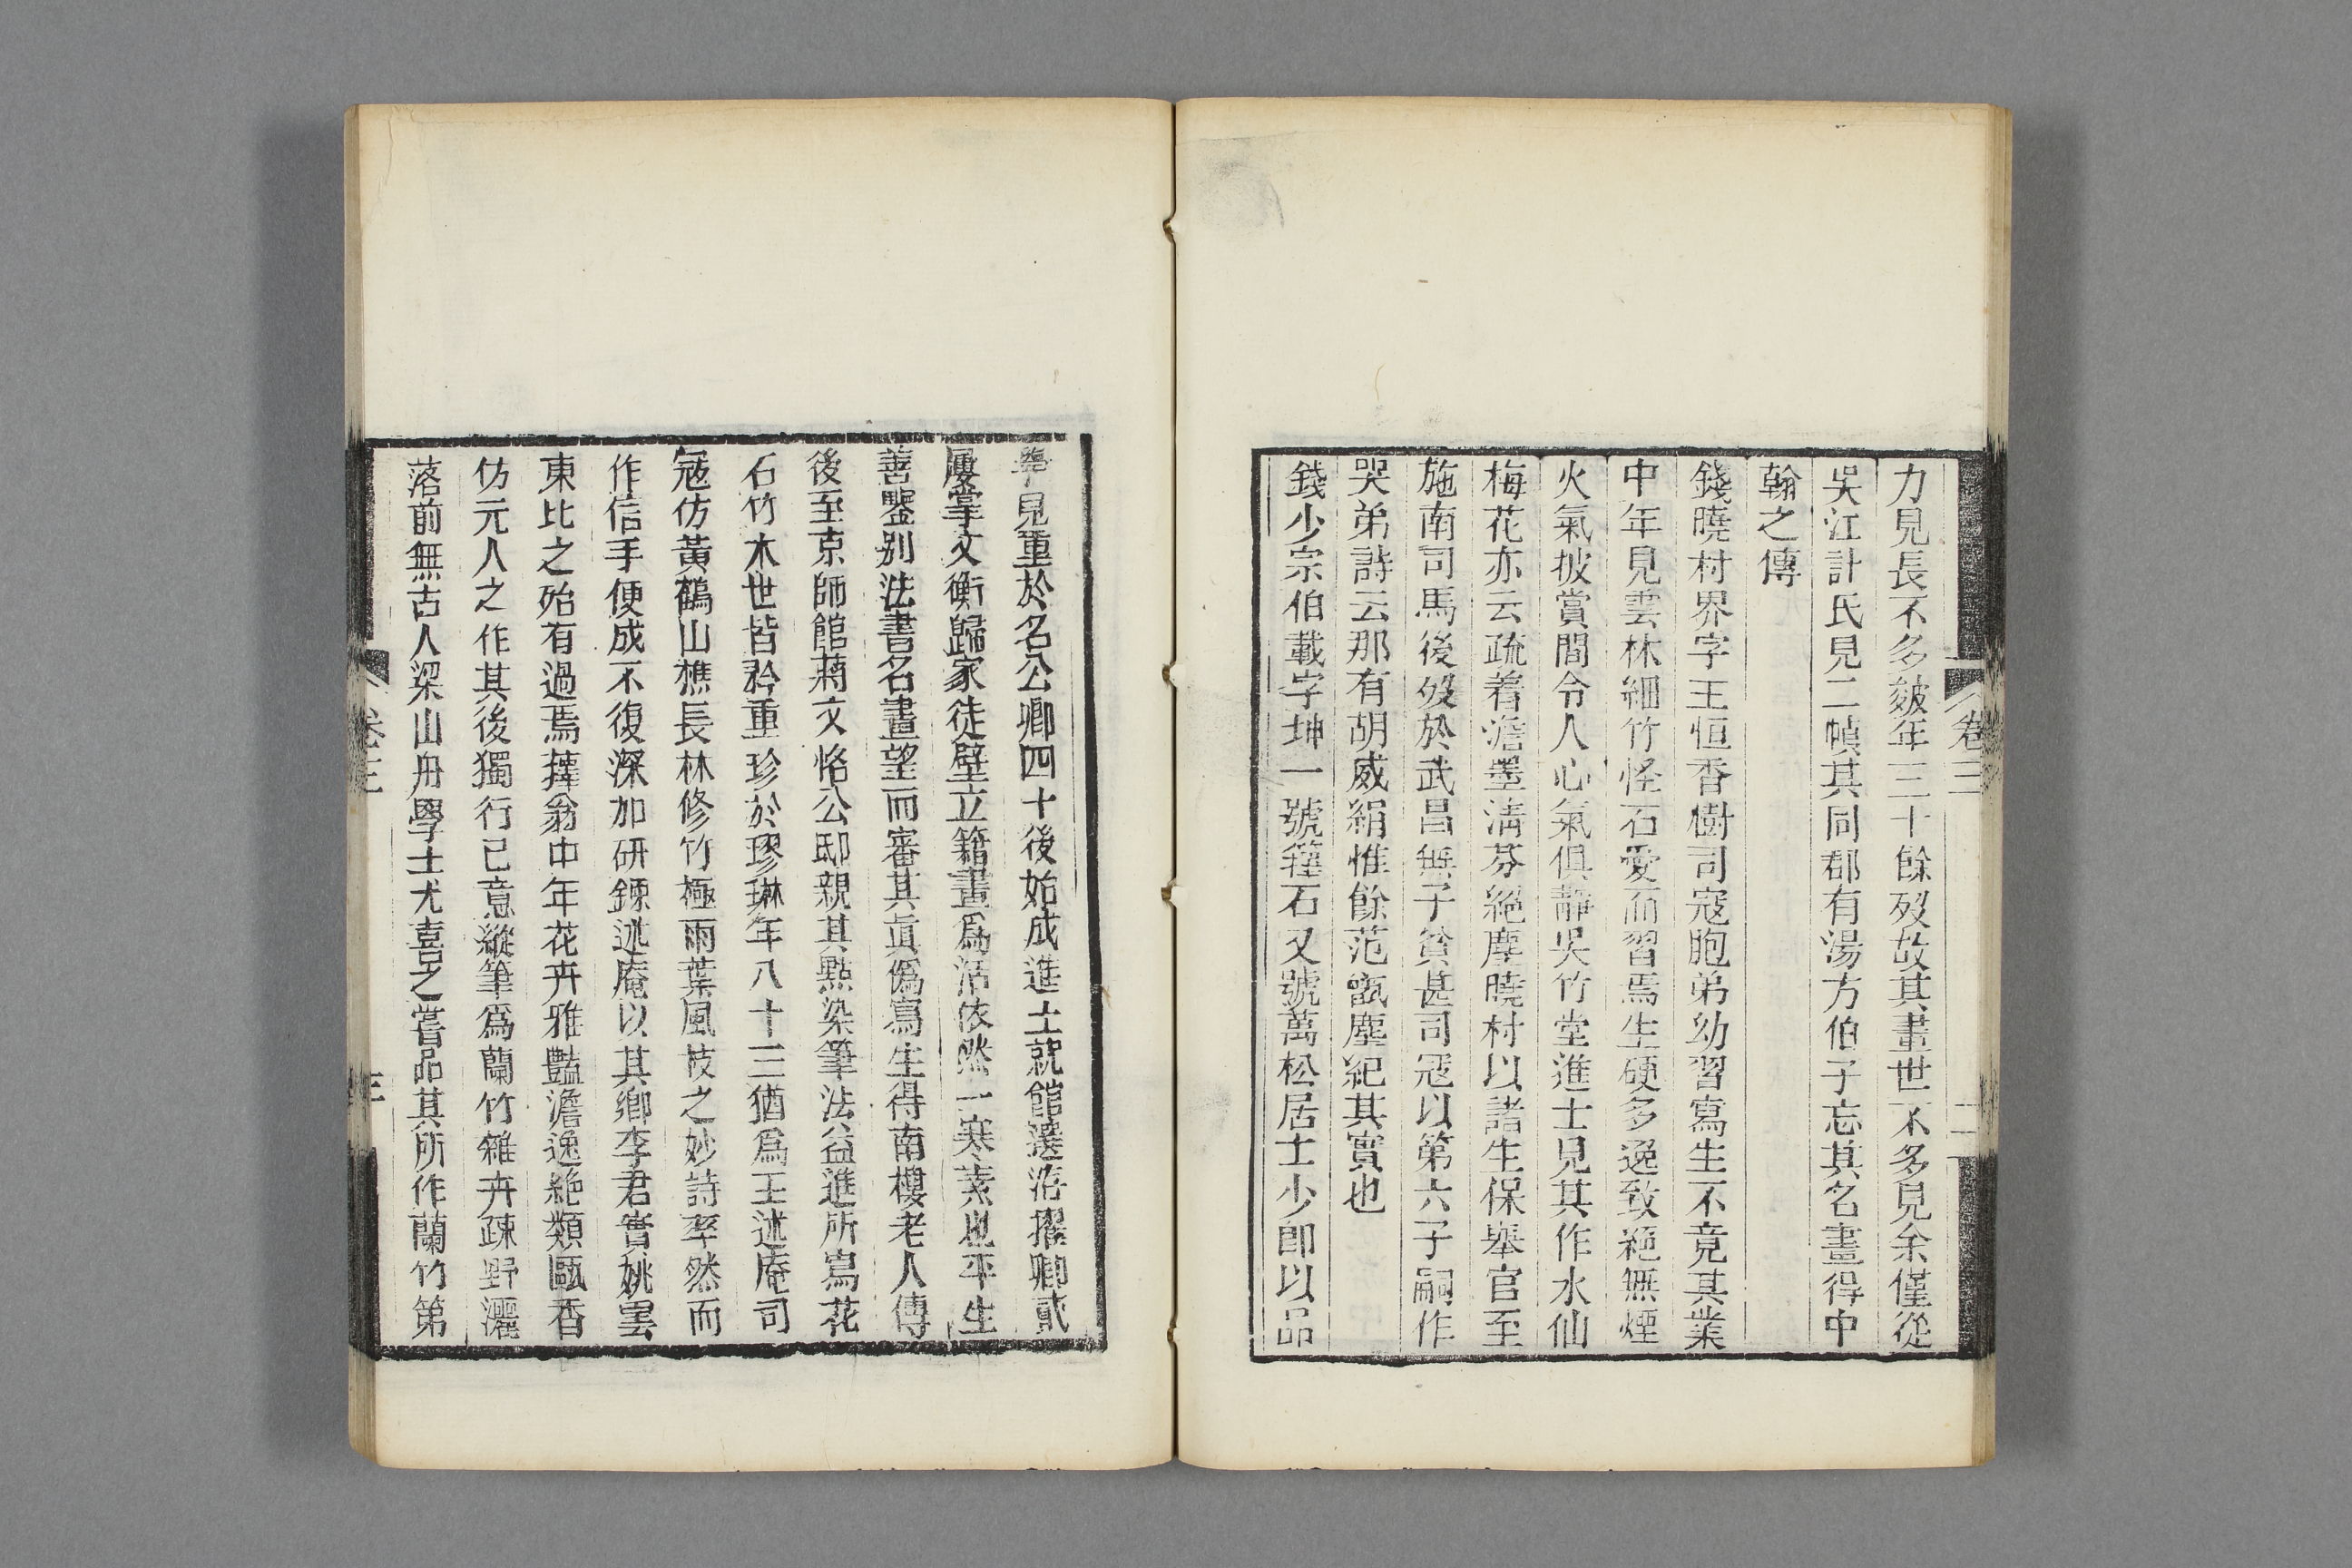 力見長不多皴年三十餘歿故其畫世不多見余僅從
吳江計氏見二幀其同郡有湯方伯子忘其名畫得中
翰之傳
錢曉村界字王恒香樹司寇胞弟幼習寫生不竟其業
中年見雲林細竹怪石愛而習焉生硬多逸致絕無煙
火氣披賞間令人心氣俱靜吳竹堂進士見其作水仙
梅花亦云疏着澹墨淸芬絕塵曉村以諸生保舉官至
施南司馬後歿於武昌無子貧甚司寇以第六子嗣作
哭弟詩云那有胡威絹惟餘范甑塵紀其實也
錢少宗伯載字坤一號籜石又號萬松居士少卽以品
卷三
二
學見重於名公卿四十後始成進士就館選洊擢卿貳
屢掌文衡歸家徒壁立籍畫爲活依然一寒素也平生
善鑒别法書名畫望而審其眞僞寫生得南樓老人傳
後至京師館蔣文恪公邸親其點染筆法益進所寫花
石竹木世皆矜重珍於璆琳年八十三猶爲王述庵司
寇仿黃鶴山樵長林修竹極雨葉風枝之妙詩率然而
作信手便成不復深加研鍊述庵以其鄉李君實姚雲
東比之殆有過焉蘀翁中年花卉雅豔澹逸絕類甌香
仿元人之作其後獨行己意縱筆爲蘭竹雜卉疎野灑
落前無古人梁山舟學士尤喜之嘗品其所作蘭竹第
卷三
三